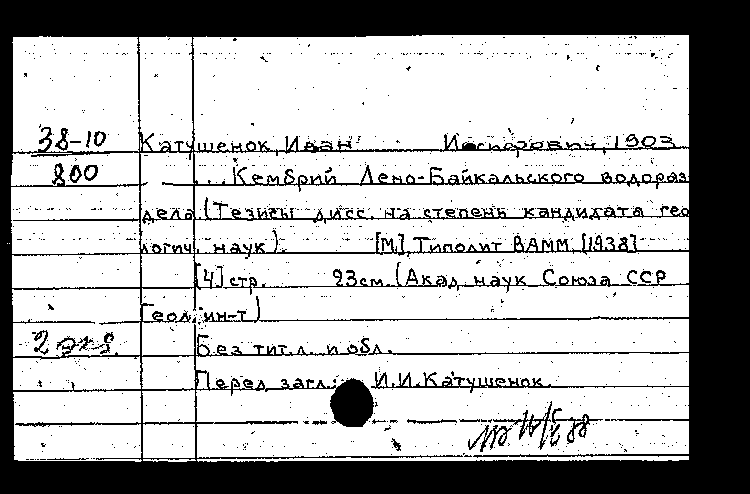 38-10 Катушенок, Иван 1903
800 ... Кембрий Лено-Байкальского водораз
дела. (Тезисы дисс. на степень кандидата гео
логич. наук). [М.], Типолит ВАММ, [1938]
[4] стр. 23см. (Акад. наук Союза ССР
Геол. ин-т)
2 экз. Без тит. л. и обл.
Перед загл.: И.И.Катушенок.